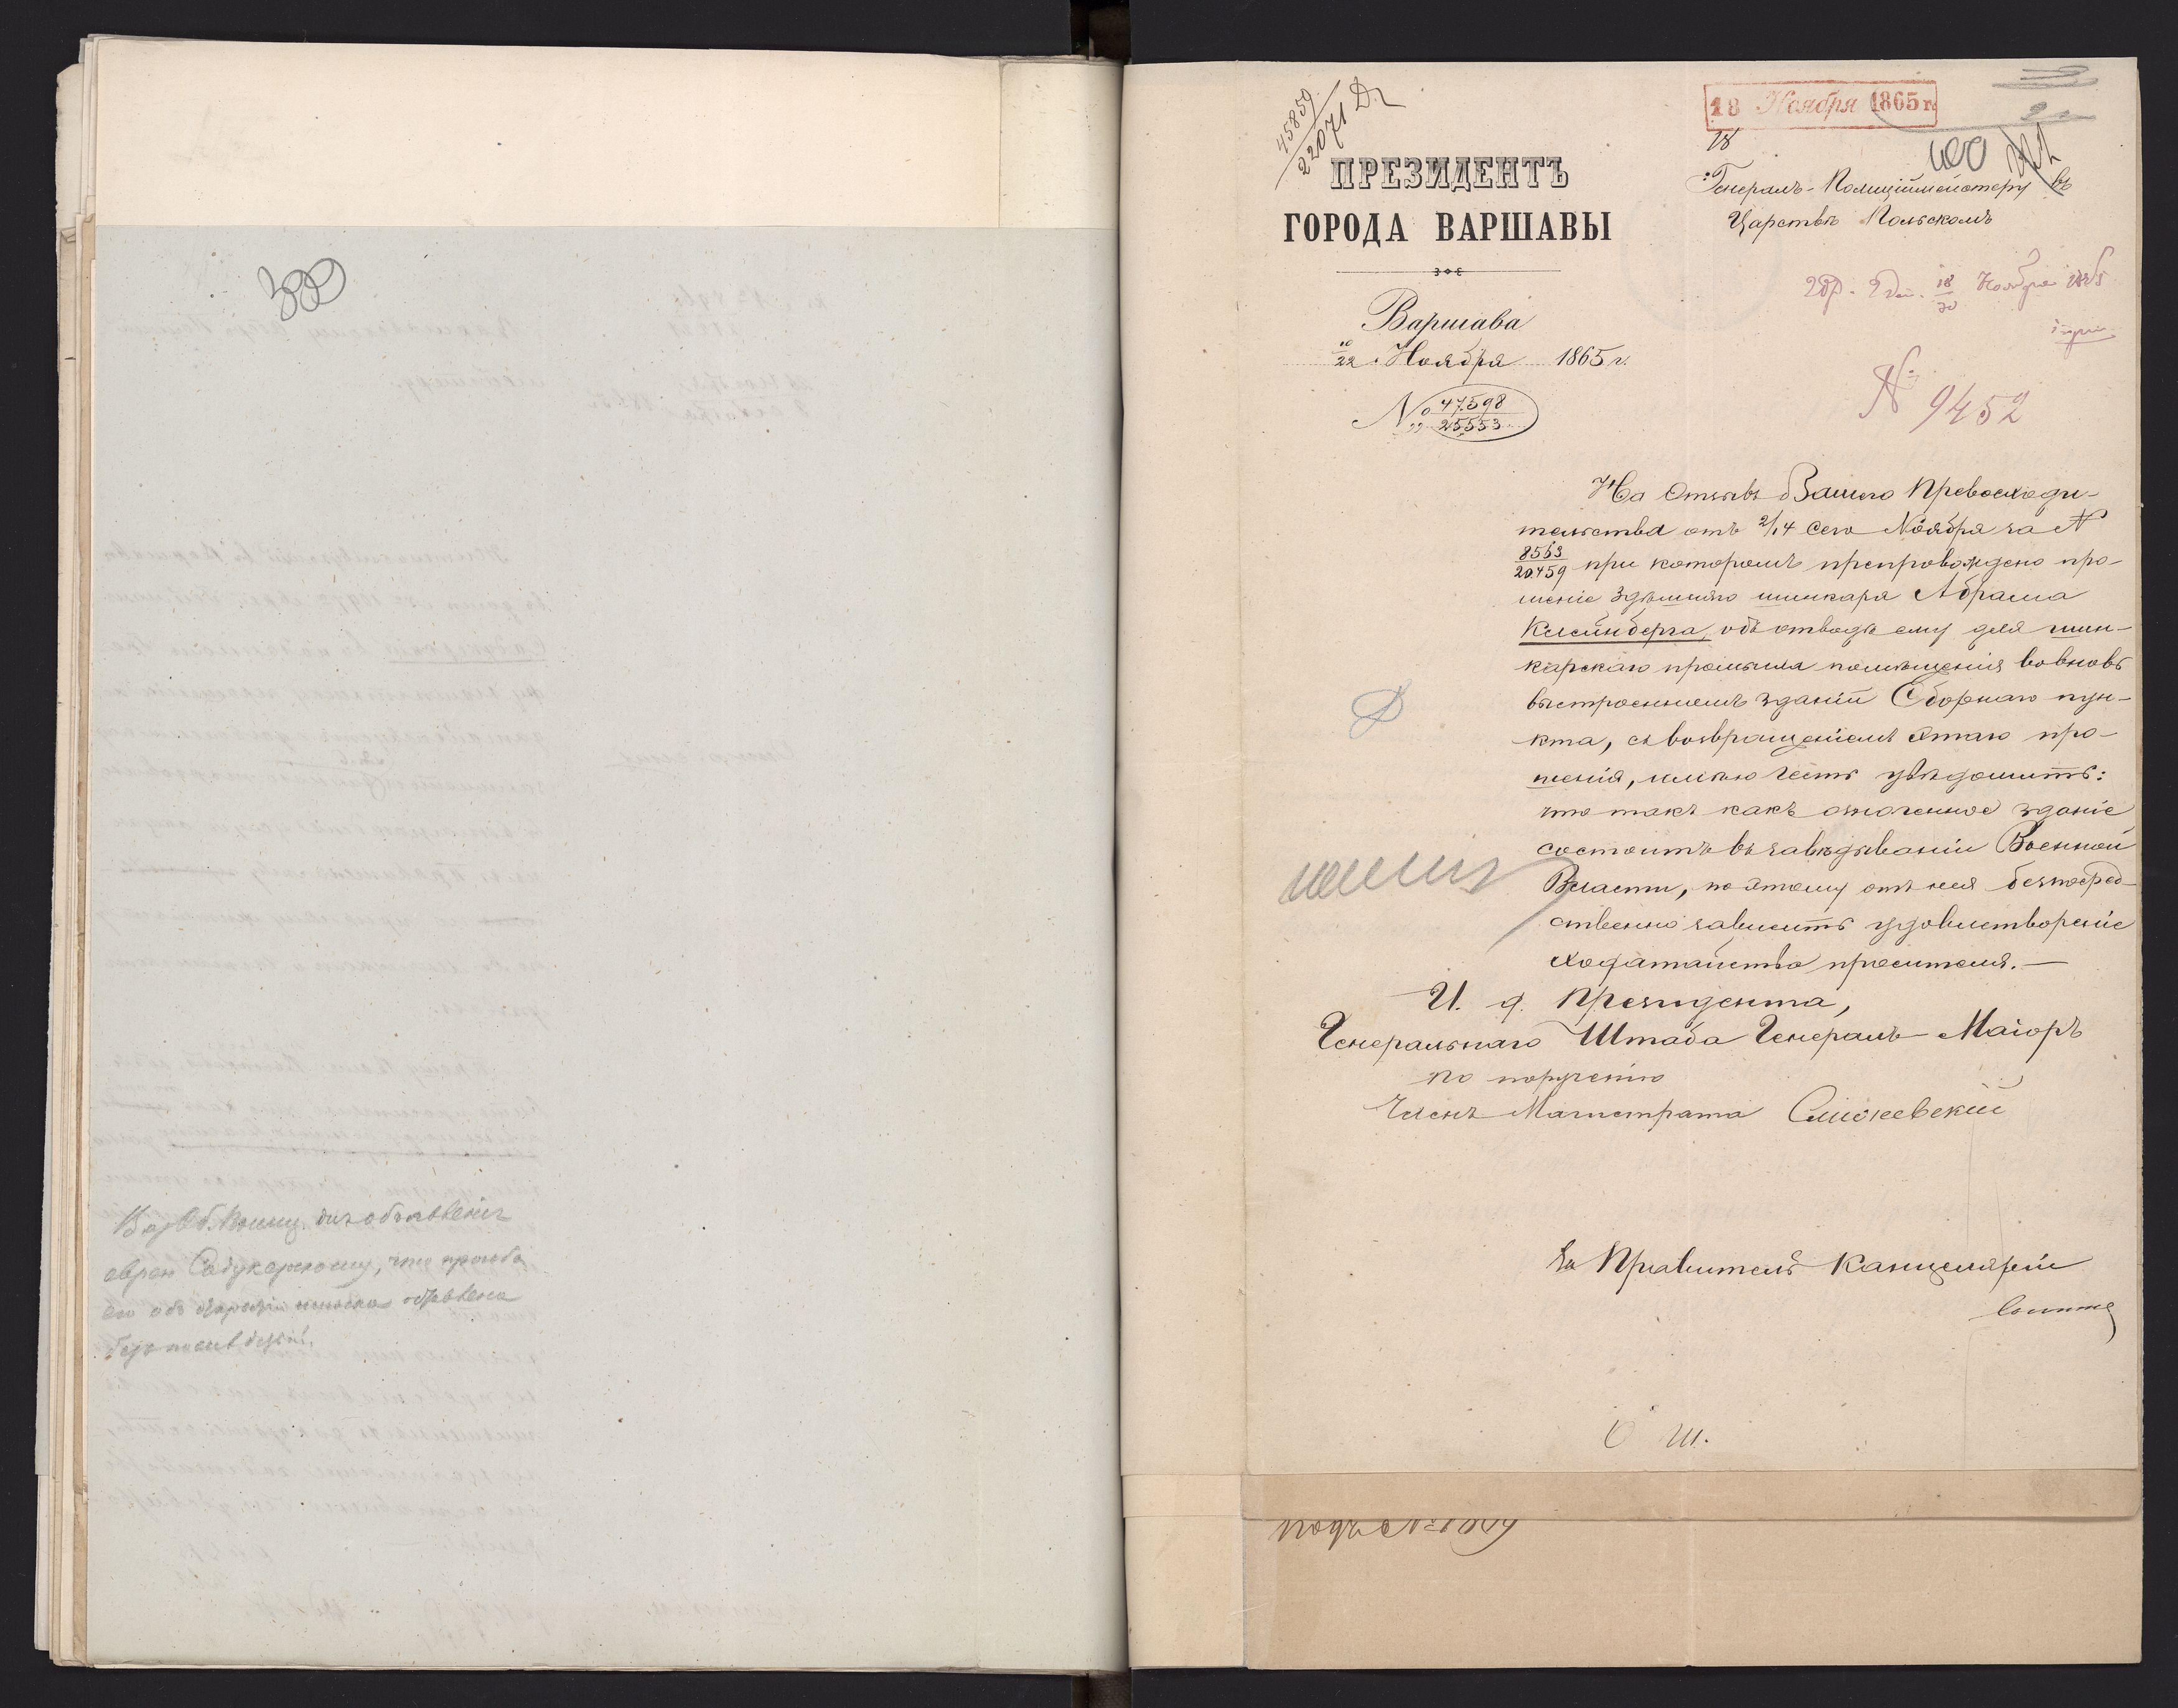 Варш. Об. Полиц. для объявленія
еврею Садукерскому, что просьба
его объ открытіи шинка оставлена
безъ послѣдствій.
45859
22071 Д
18 Ноября 1865 г.
18
400
ПРЕЗИДЕНТЪ
ГОРОДА ВАРШАВЫ
Генералъ-Полиціймейстеру въ
Царствѣ Польскомъ
Варшава
10/22 Ноября 1865 г.
№ 47598
25553
18/30 Ноября 1865
№ 9452
На Отзывъ Вашего Превосходи-
тельства отъ 2/14 сего Ноября за №
8563/20459 при которомъ препровождено про-
шеніе здѣшняго шинкаря Абрама
Клейнберга, объ отводѣ ему для шин-
карскаго промысла помѣщенія во вновь
выстроенномъ зданіи Сборнаго пун-
кта, съ возвращеніемъ этаго про-
шенія, имѣю честь увѣдомить:
что такъ какъ означенное зданіе
состоитъ въ завѣдываніи Военной
Власти, по этому отъ нея безпосред-
ственно зависитъ удовлетвореніе
ходатайства просителя.—
И. д. Президента,
Генеральнаго Штаба Генералъ-Маіоръ
по порученію
Членъ Магистрата
За Правителя Канцеляріи
С Ш.